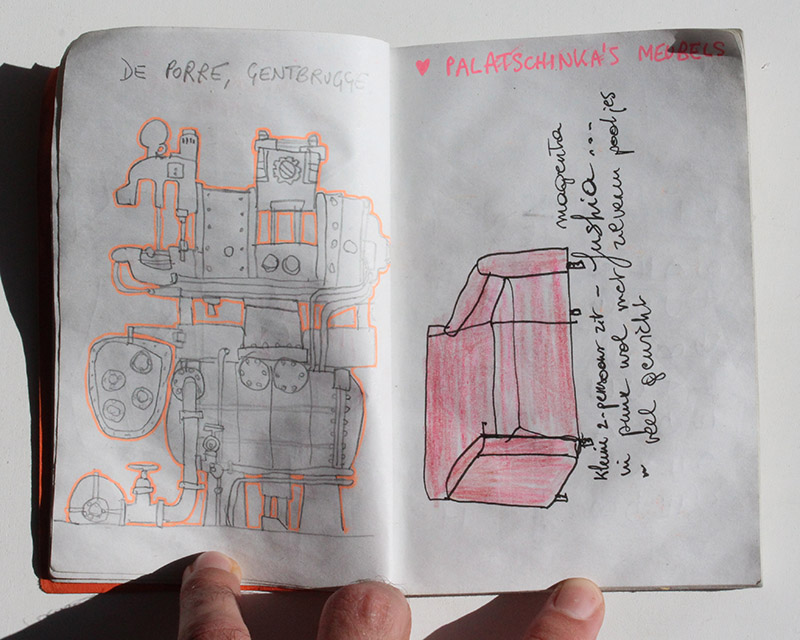 DE PORRE, GENTBRUGGE
♥ PALATSCHINKA'S MEUBELS
magenta
kleine 2-persoons zit - fushia ...
in pure wol met zilveren pootjes
veel